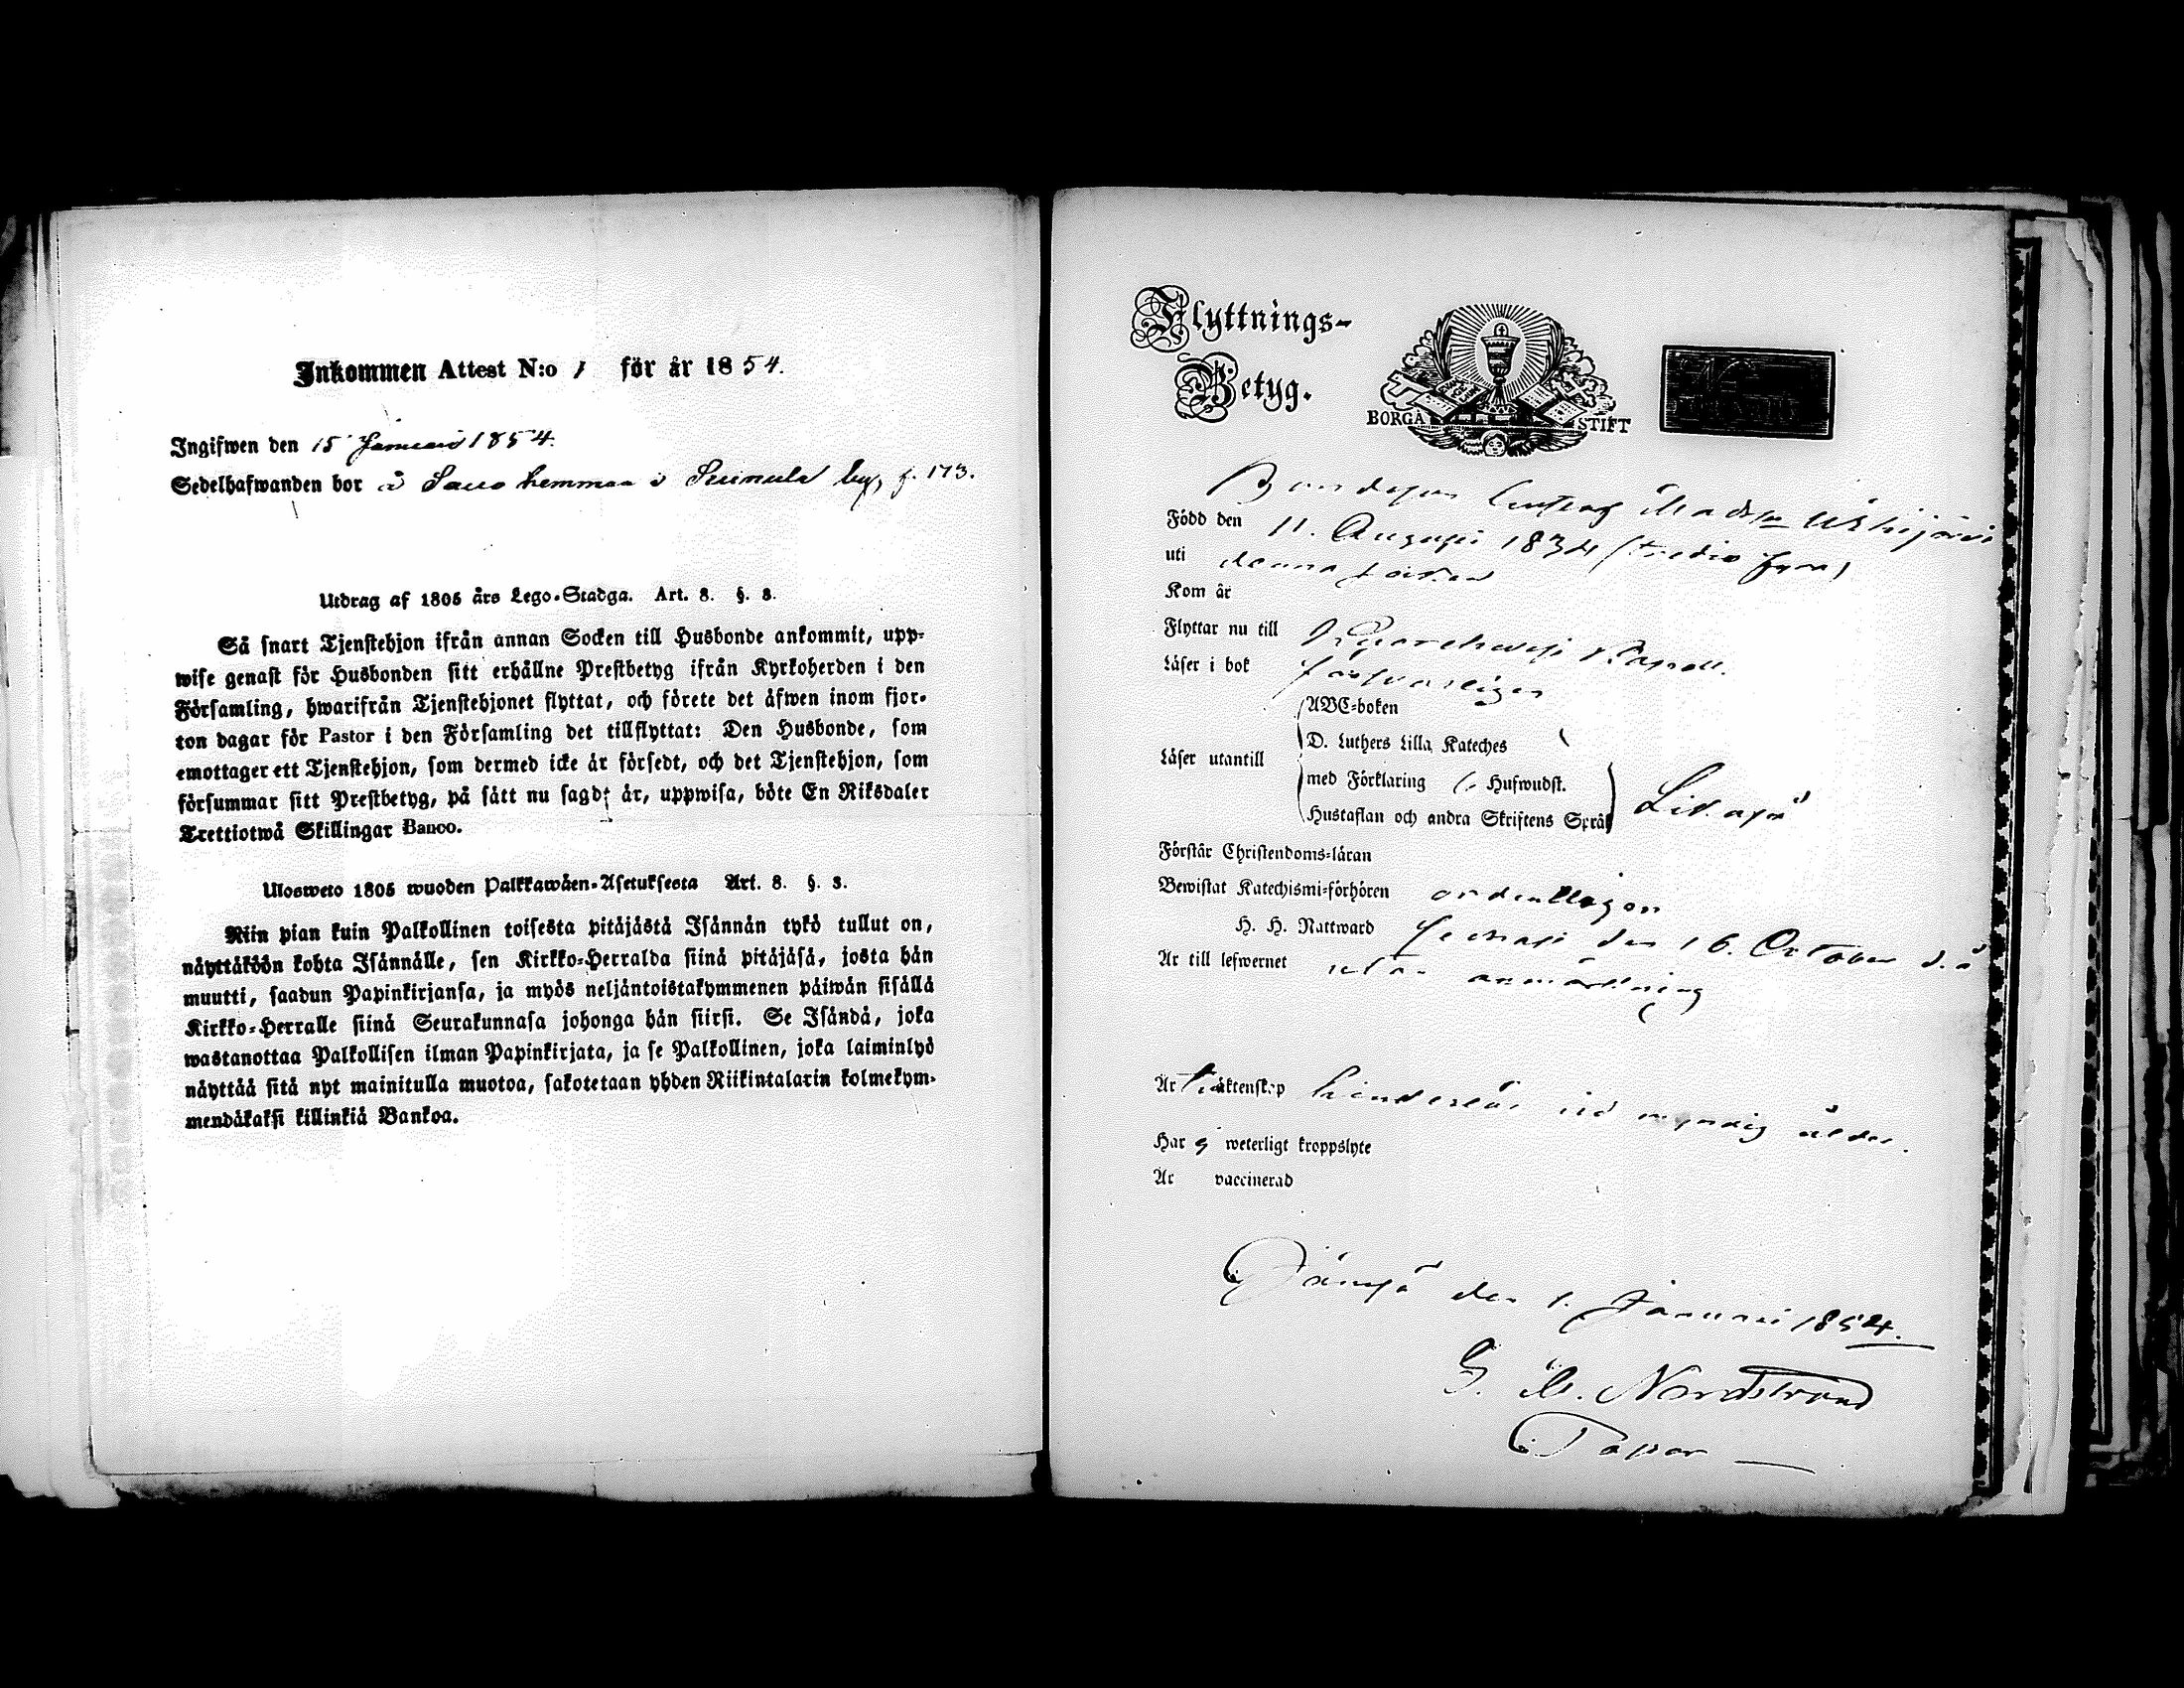 Inkommen Attest N:o 1 för år 1854.
Ingifwen den 15 Januari 1854.
Sedelhafwanden bor å Sauo hemman i Suinula by, f. 173.
Utdrag af 1805 års Lego-Stadga. Art. 8. §. 8.
Så snart Tjenstehjon ifrån annan Socken till Husbonde ankommit, upp-
wise genast för Husbonden sitt erhållne Prestbetyg ifrån Kyrkoherden i den
Församling, hwarifrån Tjenstehjonet flyttat, och förete det äfwen inom fjor-
ton dagar för Pastor i den Församling det tillflyttat: Den Husbonde, som
emottager ett Tjenstehjon, som dermed icke är försedt, och det Tjenstehjon, som
försummar sitt Prestbetyg, på sätt nu sagdt är, uppwisa, böte En Riksdaler
Trettiotwå Skillingar Banco.
Ulosweto 1805 wuoden Palkkawäen-Asetuksesta Art. 8. §. 8.
Niin pian kuin Palkollinen toisesta pitäjästä Isännän tykö tullut on,
näyttäköön kohta Isännälle, sen Kirkko-Herralda siinä pitäjäsä, josta hän
muutti, saadun Papinkirjansa, ja myös neljäntoistakymmenen päiwän sisällä
Kirkko-Herralle siinä Seurakunnasa johonga hän siirsi. Se Isändä, joka
wastanottaa Palkollisen ilman Papinkirjata, ja se Palkollinen, joka laiminlyö
näyttää sitä nyt mainitulla muotoa, sakotetaan yhden Riikintalarin kolmekym-
mendäkaksi killinkiä Bankoa.
Flyttnings-
Betyg.
BORGÅ STIFT
Bondeson Gustaf Madsson Ukhijärvi
Född den 11. Augusti 1834 (tretio fyra)
uti denna socken
Kom år
Flyttar nu till Kuorehvesi Kapell.
Läser i bok försvarligen
ABC-boken
D. Luthers Lilla Kateches
Läser utantill
med Förklaring Hufwudst.
Hustaflan och andra Skriftens Språk
Likaså
Förstår Christendoms-läran
Bewistat Katechismi-förhören ordentligen
H. H. Nattward senast den 16. October d. å
Är till lefwernet utan anmärkning
Är till äktenskap hinderlös vid myndig ålder.
Har ej weterligt kroppslyte
Är vaccinerad
Jämsä den 1. Januari 1854.
G. M. Nordstrand